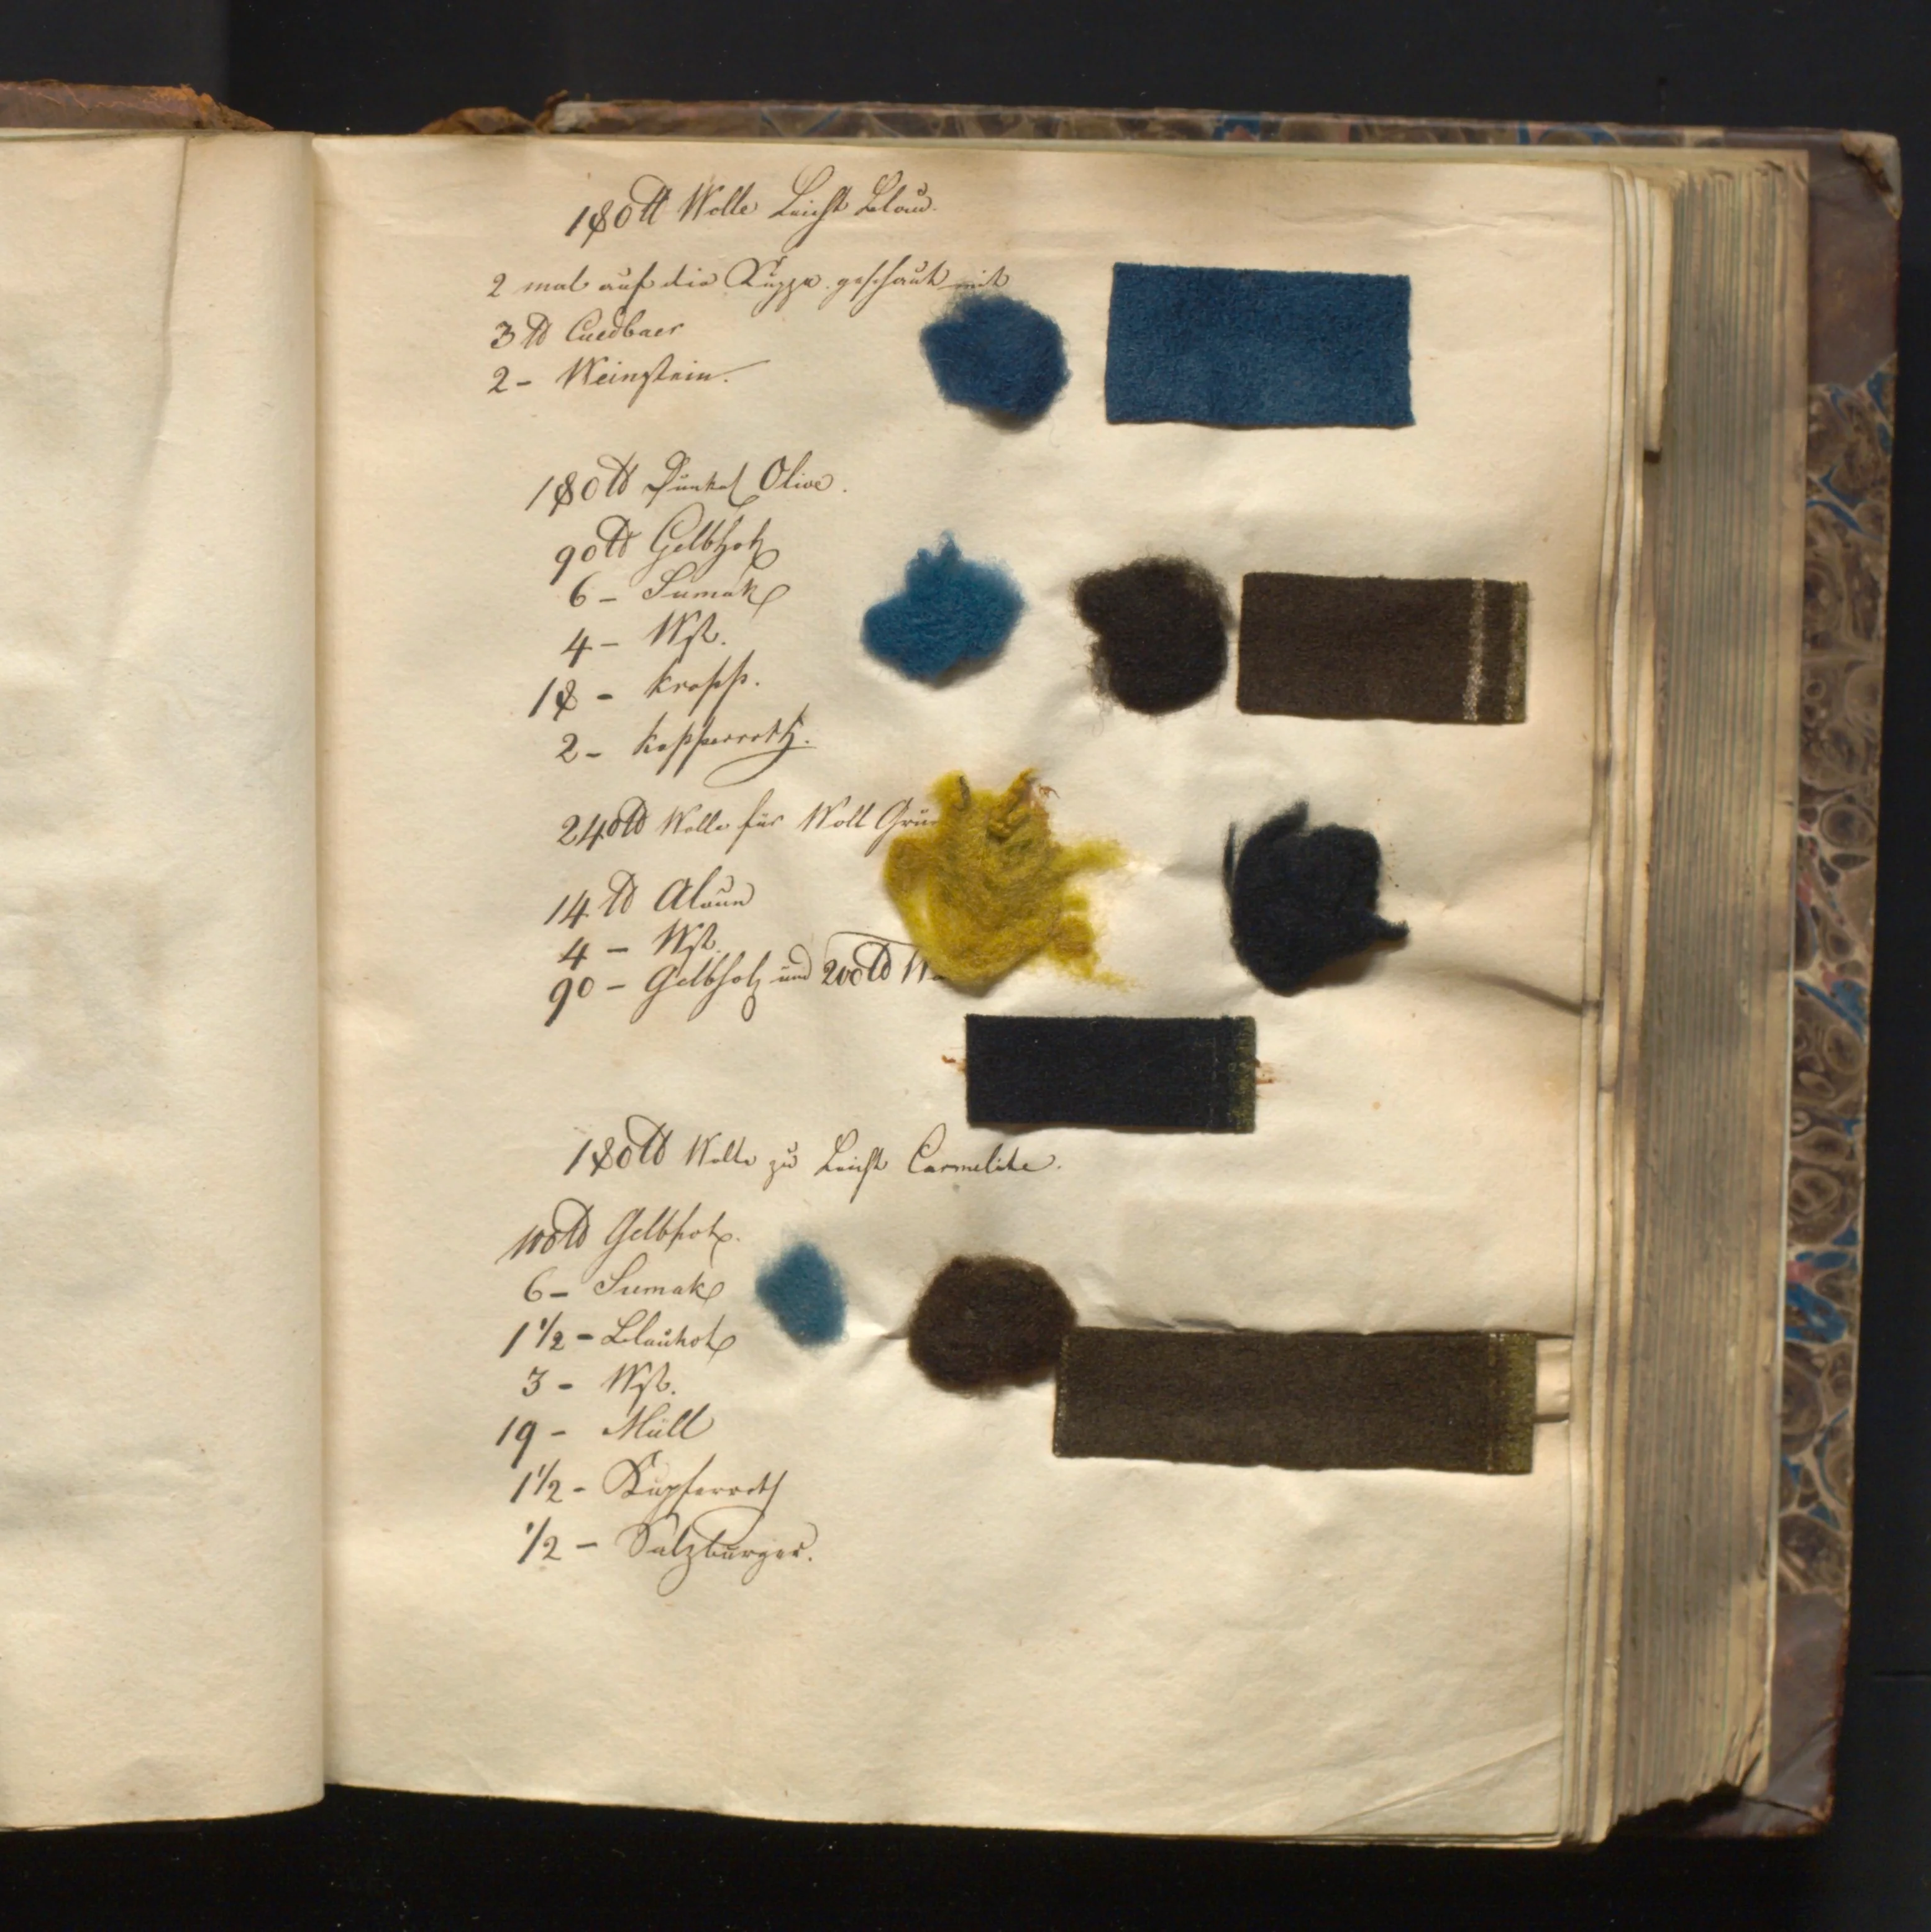 180 ℔ Wolle Leicht Blau.
2 mal auf die Kuppe geschaut mit
3 ℔ Cuedbaer
2 - Weinstein.
180 ℔ Dunkel Olive.
90 ℔ Gelbholz
6 - Sumak
4 - Wst.
18 - Krapp.
2 - Kopperroth.
240 ℔ Wolle für Woll Grün
14 ℔ Alaun
4 - Wst.
90 - Gelbholz und 200 ℔
180 ℔ Wolle zu Leicht Carmelite.
100 ℔ Gelbholz.
6 - Sumak
1 1/2 - Blauholz
3 - Wst.
19 - Müll
1 1/2 - Kupferroth
1/2 - Salzburger.